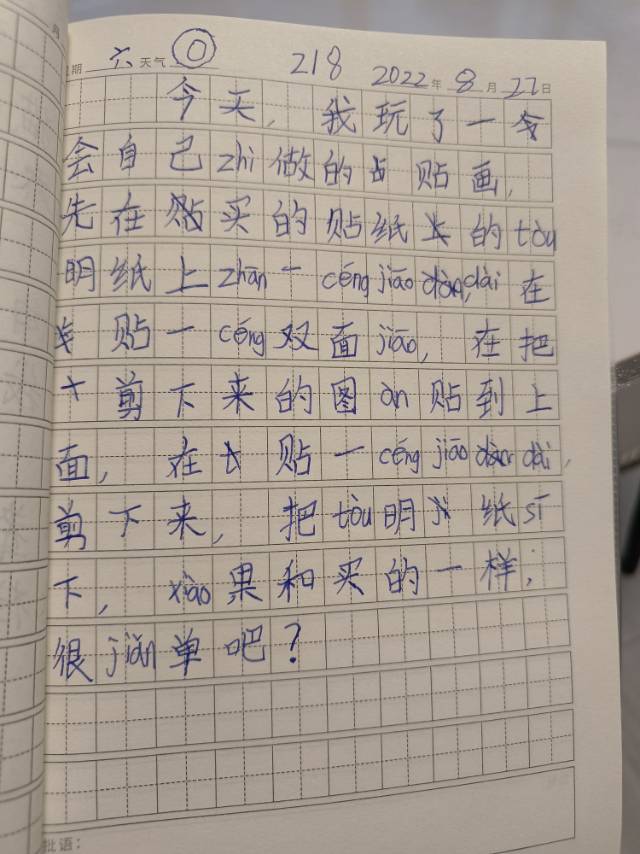 期 六 天气 218 2022年8月27日
今天，我玩了一
会自己zhi做的贴画，
先在买的贴纸的tòu
明纸上zhān一céngjiāo dài，在
贴一céng双面jiāo，在把
剪下来的图àn贴到上
面，在贴一céngjiāo dài，
剪下来，把tòu明纸sī
下，xiào果和买的一样；
很jiǎn单吧？
批语：